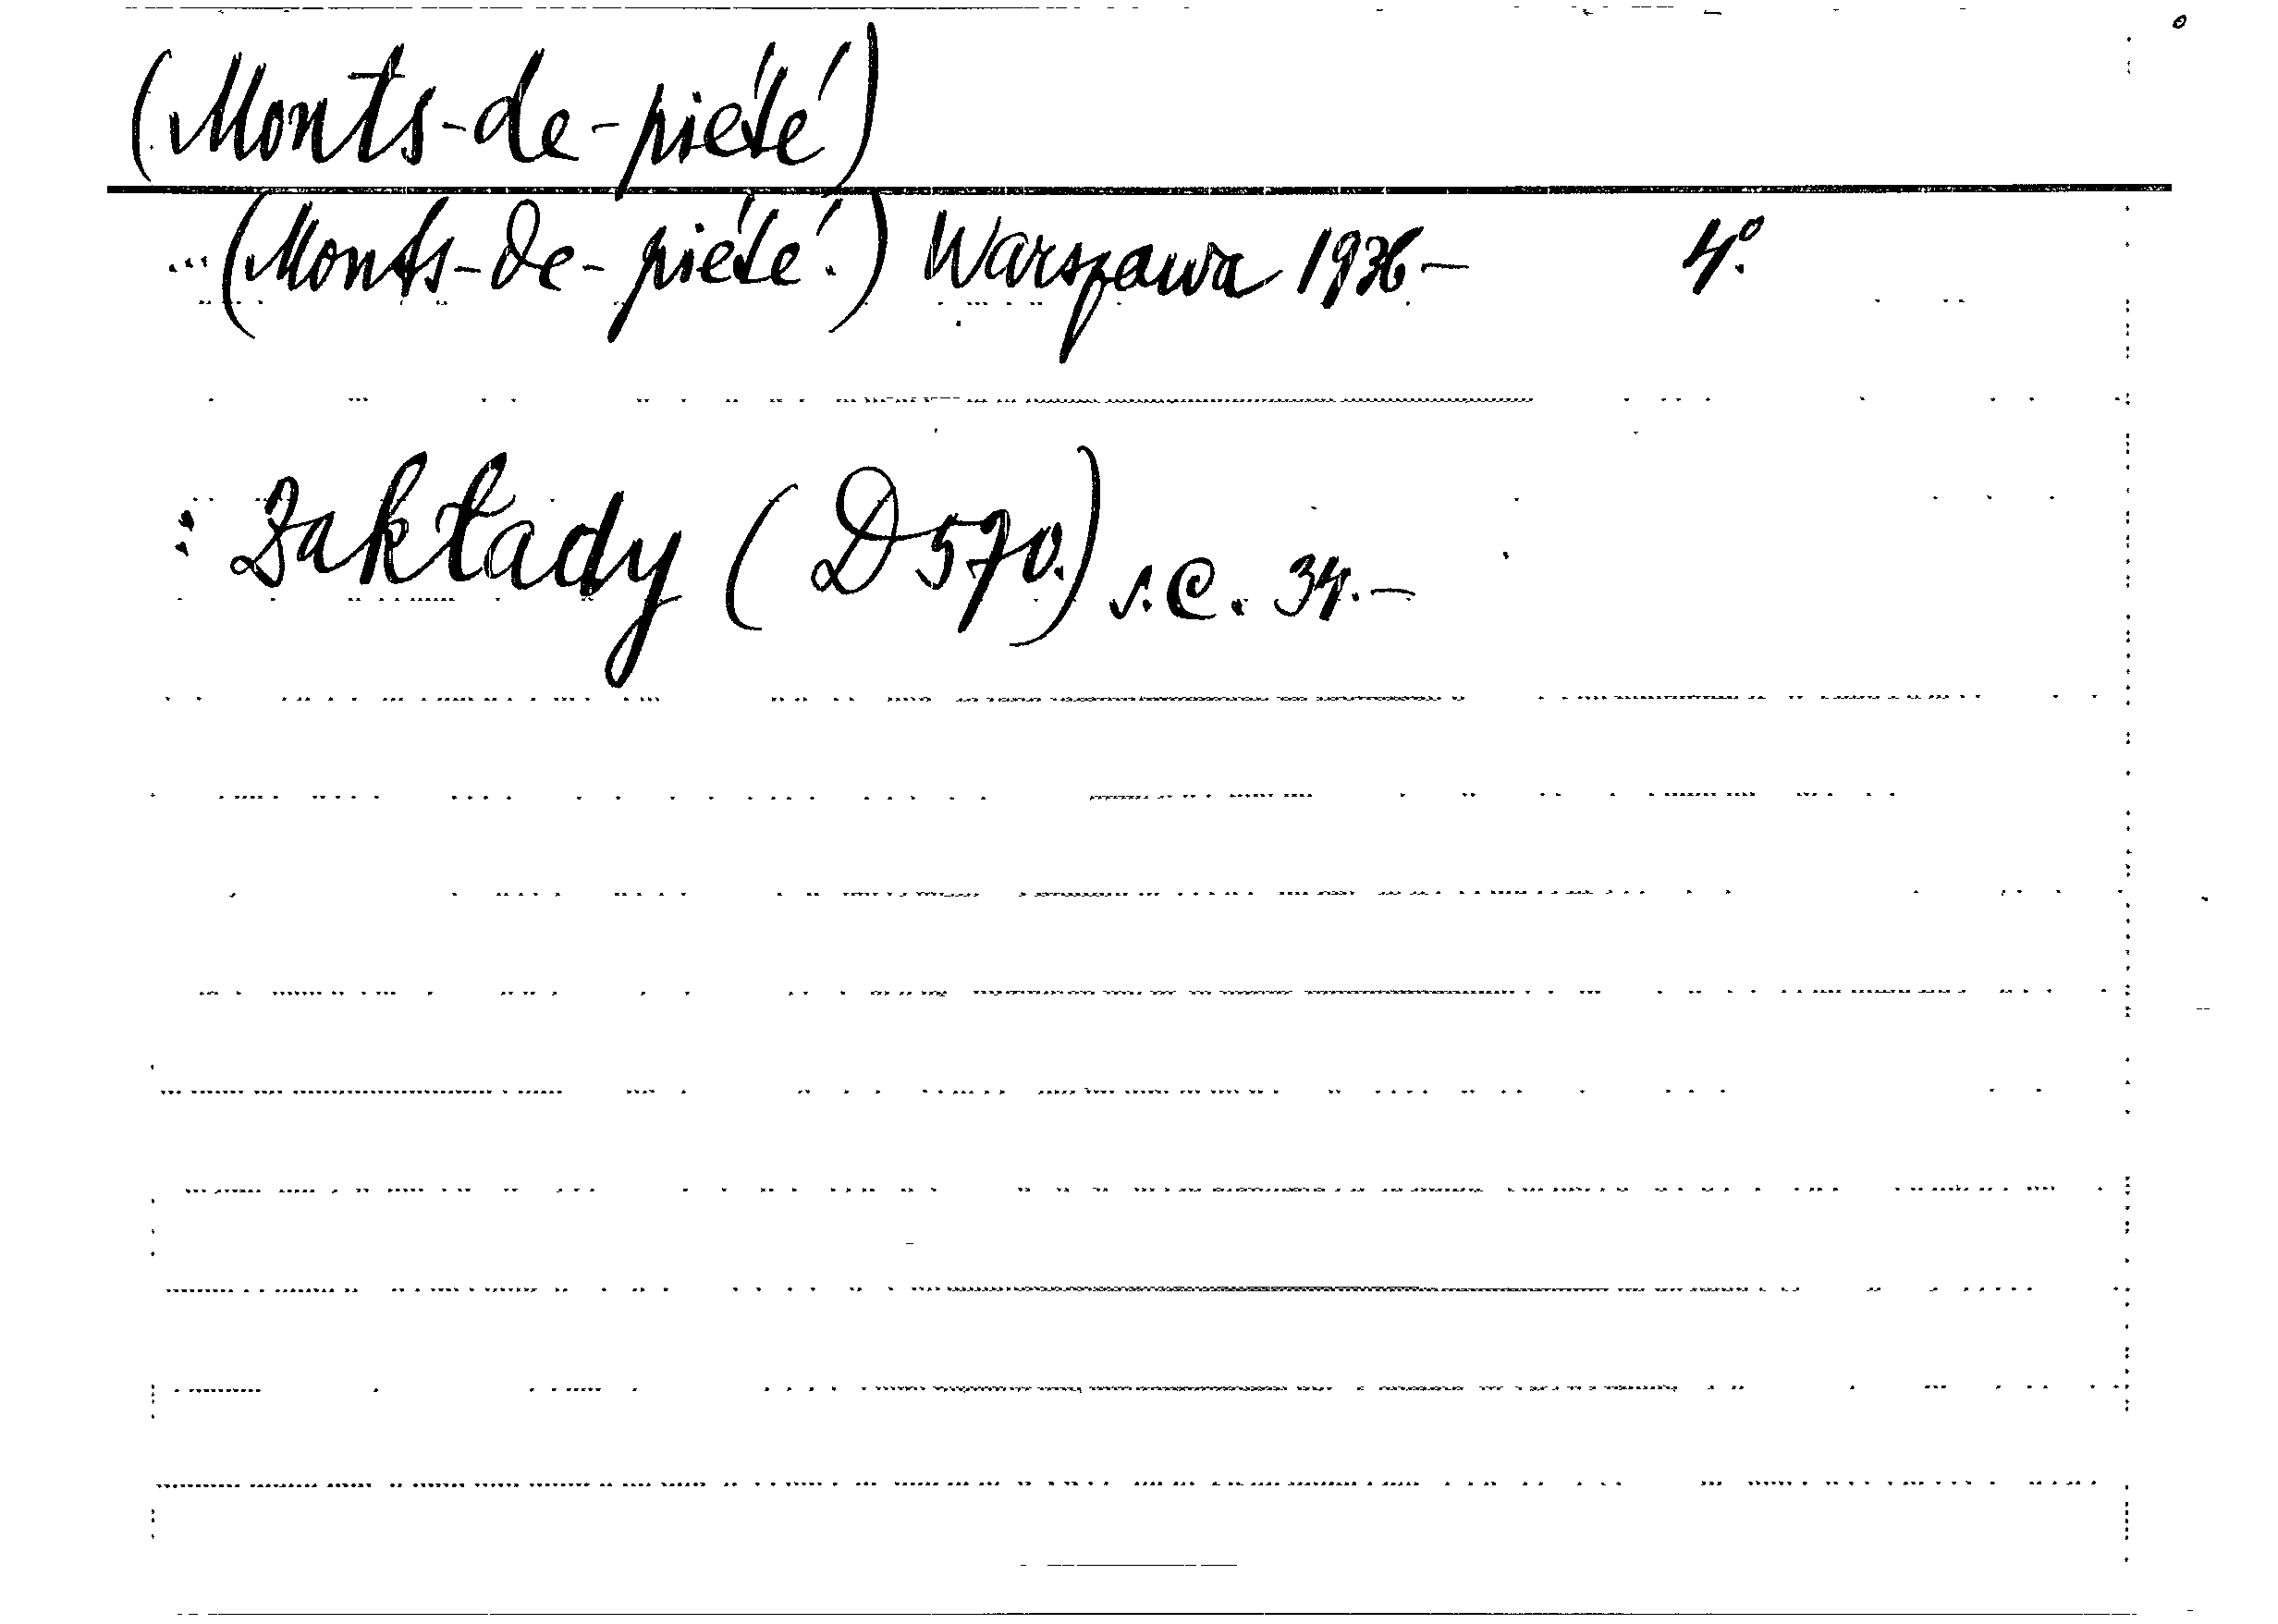 (Monts-de-piété)
...(Monts-de-piété.) Warszawa 1936- 4º.
: Zakłady (D570.) s.C. 34.-